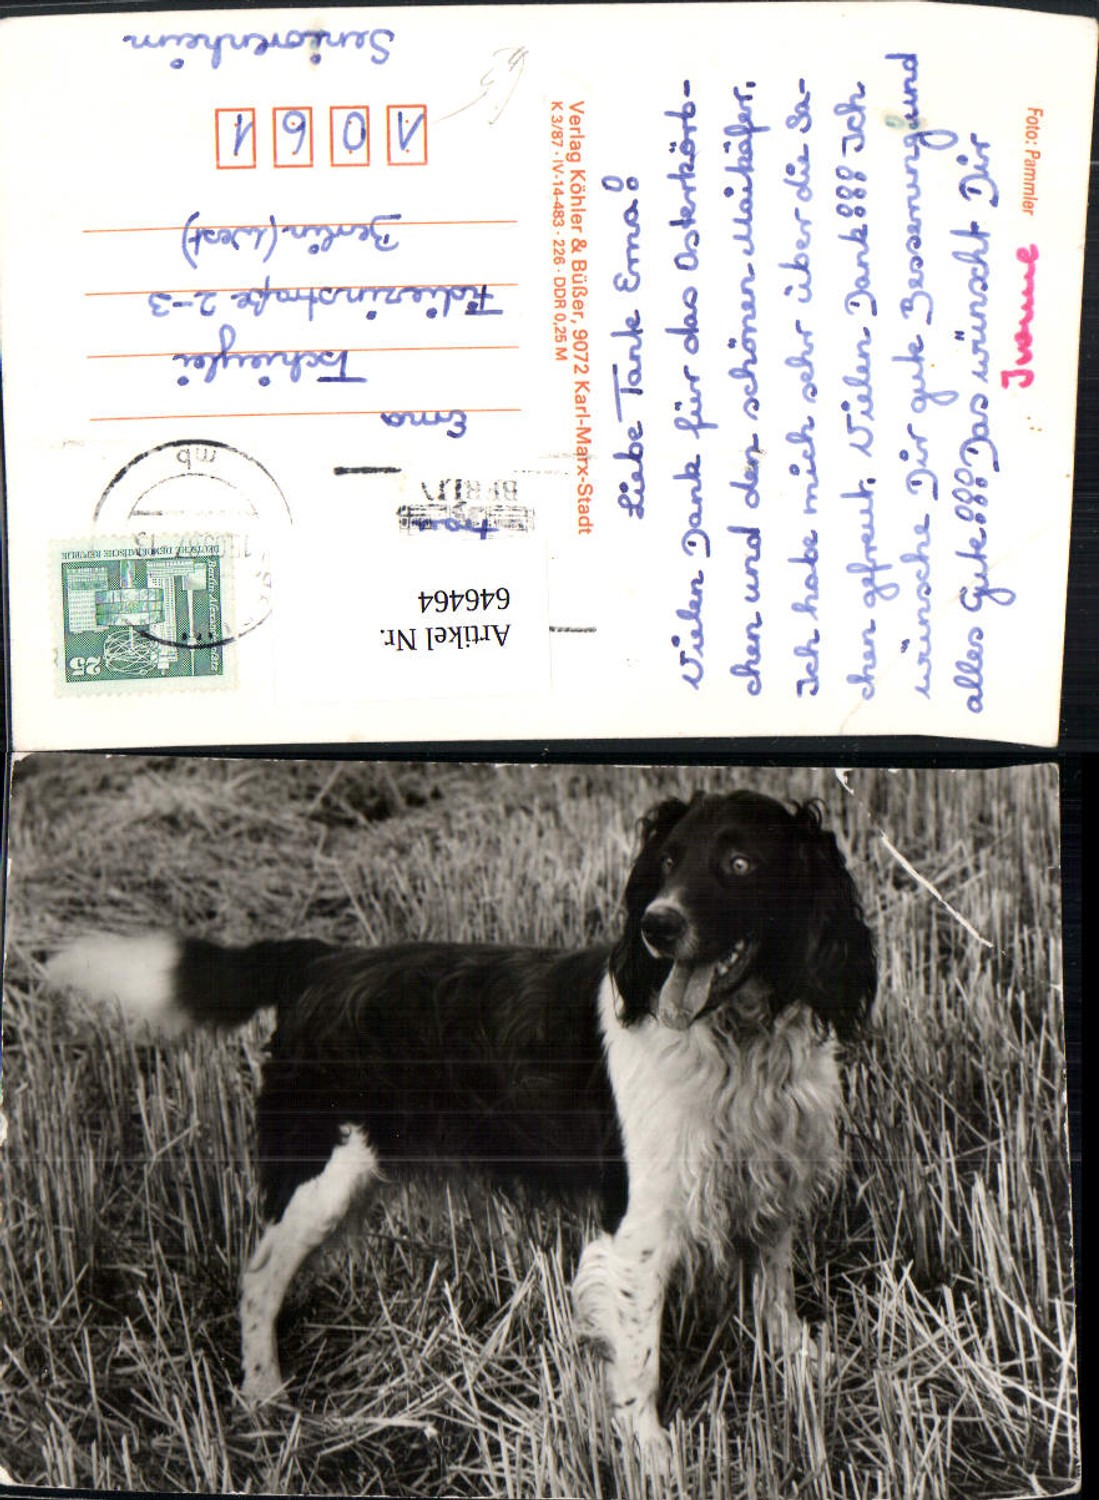 Liebe Tante Erna!
Vielen Dank für das Osterkörb-
chen und den schönen Maikäfer.
Ich habe mich sehr über die Sa-
chen gefreut. Vielen Dank!!! Ich
wünsche Dir gute Besserung und
alles Gute!!! Das wünscht Dir
Ivonne
Foto: Pammler
Verlag Köhler & Büßer, 9072 Karl-Marx-Stadt
K 3/87 · IV-14-483 · 226 · DDR 0,25 M
Frau
Erna
Fidicinstraße 2-3
Berlin (West)
1061
Seniorenheim
BERLIN
mb
DEUTSCHE DEMOKRATISCHE REPUBLIK
25
Artikel Nr.
646464